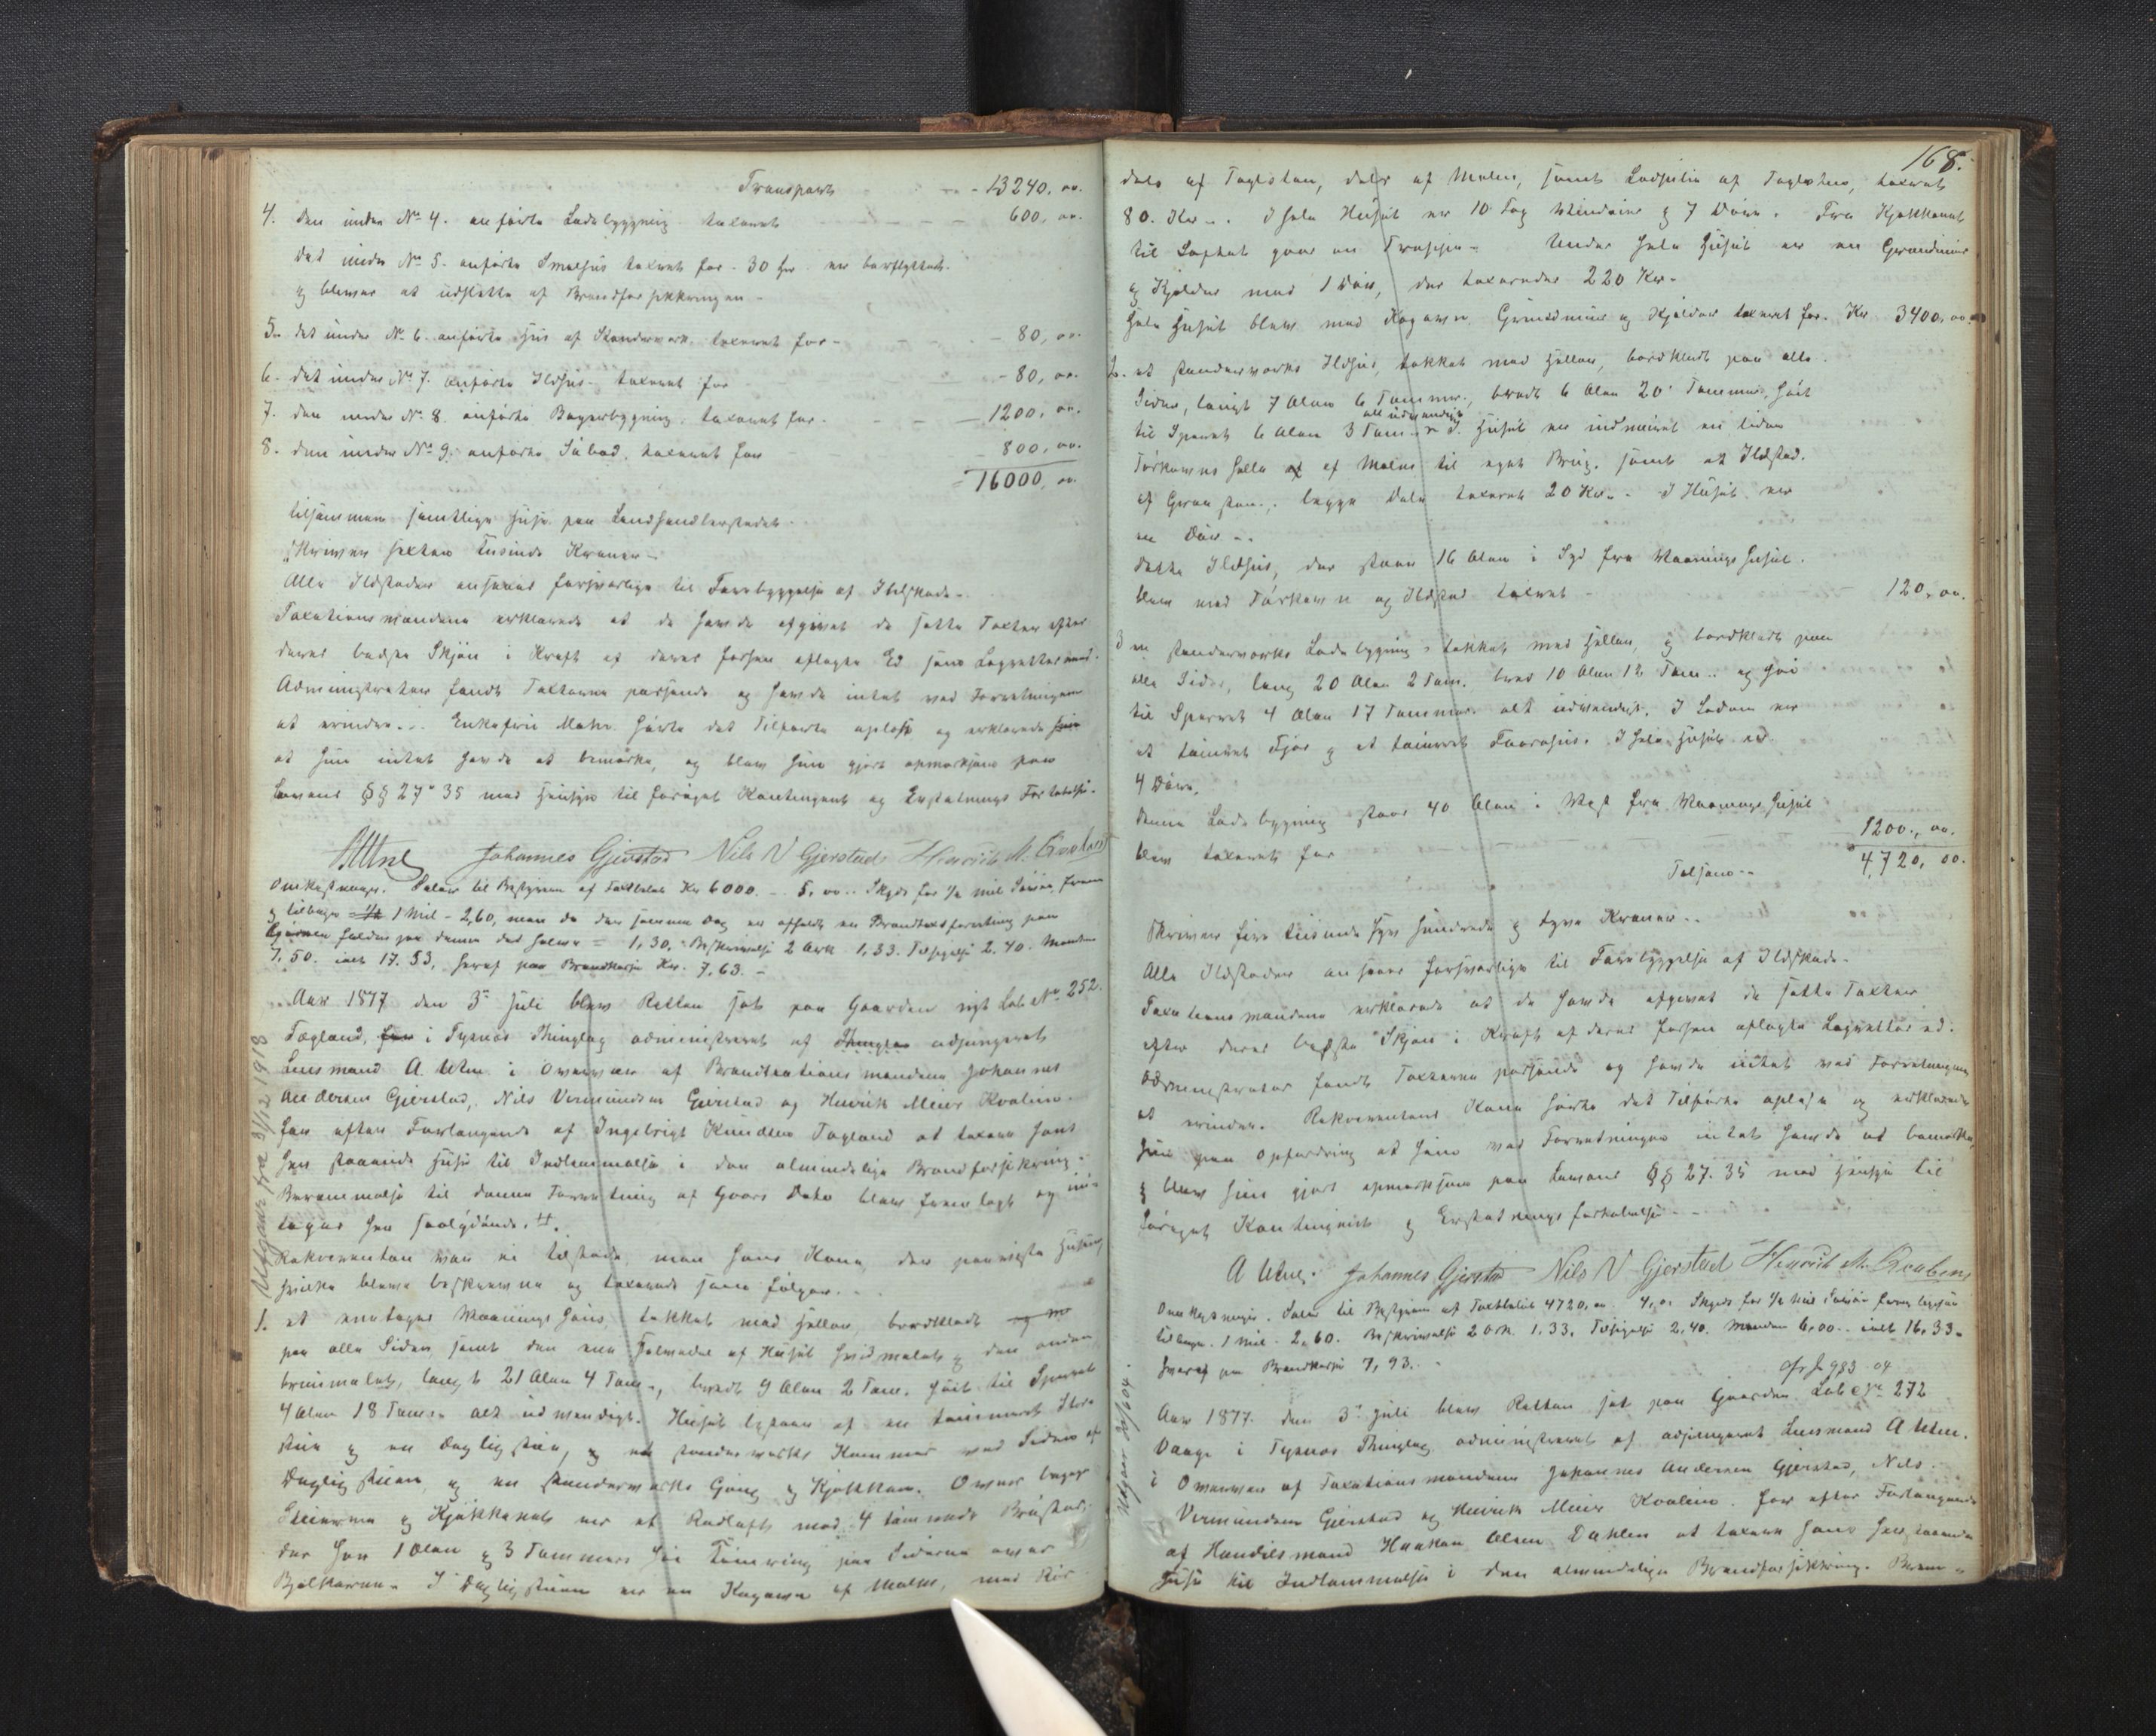 Transport - 13240, oo.
4. den under No 4. anførte Ladebyggning taxeret - - - 600, oo.
det under No 5. anførte Smalhus taxeret for - 30 Kr. er borflyttet.
og bliver at udslette af Brandforsikkringen -
5. det under No 6. anførte Huus af Standerværk taxeret for - - 80, oo.
6. det under No 7. anførte Ildhus taxeret for - 80, oo.
7. den under No 8. anførte Bagerbygning taxeret for - - 1200, oo.
8. den under No 9. anførte Søbod, taxeret for 800, oo.
16000, oo.
tilsammen samtlige Huse paa Landhandlerstedet.
skriver sexten Tusinde Kroner -
Alle Ildsteder ansees forsvarlige til Forebyggelse af Ildskade -
Taxationsmændene erklærede at de havde afgivet de satte Taxter efter
deres bedste Skjøn i Kraft af deres forhen aflagte Ed som Lagrettesmænd.
Administrator fandt Taxterne passende og havde intet ved Forretningen
at erindre. - Enkefru Mohn hørte det Tilførte oplæst og erklærede
at hun intet havde at bemærke, og blev hun gjort opmærksom paa
Lovens §§ 27 o 35 med Hensyn til forøget Kontingent og Erstatnings Fortabelse.
AUtne Johannes Gjerstad Nils N Gjerstad Henrik M.
Omkostninger. Salær til Bestyreren af Taxtbeløb Kr 6000. - 5, oo. Skyds for ½ Mil Søvei frem
og tilbage = 1 Mil - 2,60, men da der samme Dag er afholdt en Brandtaxtforretning paa
falder paa denne det halve = 1,30. Beskrivelse 2 Ark 1,33. Tilsigelse 2,40. Mændene
7,50. ialt 17.53, heraf paa Brandkassen Kr. 7,63. -
Aar 1877 den 3die Juli blev Retten sat paa Gaarden nyt Løbe No 252.
Tegland, i Tysnæs Thinglag administreret af adjungeret
Lensmand A. Utne i Overvær af Brandtaxtionsmændene Johannes
Andersen Gjerstad, Nils Vermundsen Gjerstad og Henrik Meier Kroalien.
for efter Forlangende af Ingebrigt Knudsen Tegland at taxere hans
her staaende Huse til Indlemmelse i den almindelige Brandforsikring.
Berammelse til denne Forretning af Gaars Dato blev fremlagt og ind-
tages her saalydende. H.
Rekvirenten var ei tilstede, men hans Kone, der paaviste Husene,
hvilke bleve beskrevne og taxerede som følger. -
1. et eenetages Vaanings Huus, tækket med Heller, bordklædt
paa alle Sider, samt den ene Halvedel af Huset hvidmalet og den anden
brunmalet, langt 21 Alen 4 Tom., bredt 9 Alen 2 Tom. høit til Sperret
4 Alen 18 Tom. alt udvendigt. Huset bestaar af en tømmeret Stor-
stue og en Dagligstue, og et standerværks Kammer ved Siden af
Dagligstuen, og en standerværks Gang og Kjøkken. Over begge
Stuerne og Kjøkkenet er et Rødloft med 4 tømrede Bruster
der har 1 Alen og 3 Tommers høi Tømring paa Siderne over
Bjelkerne. I Dagligstuen er en Kogovn af Malm, med Rør
Utgaar fra 31/12 1918
168.
dels af Teglsten, dels af Malm, samt Ladpibe af Teglsten, taxeret
80. Kr -. I hele Huset er 10 Fag Vinduer og 7 Døre. Fra Kjøkkenet
til Loftet gaar en Trappe - Under hele Huset er en Grundmuur
og Kjelder med 1 Dør, der taxeredes 220 Kr -
hele Huset blev med Kogovn Grundmuur og Kjelder taxeret for. Kr 3400, oo.
2. et standerværks Ildhus, tækket med Heller, bordklædt paa alle
Sider, langt 7 Alen 6 Tommer, bredt 6 Alen 20 Tommer, høit
til Sperret 6 Alen 3 Tom. alt udvendigt I Huset er indmuret en liden
Tørkovns helle af Malm til eget Brug, samt et Ildsted
af Graasten, begge Dele taxeret 20 Kr. - I Huset er
en Dør -.
dette Ildhus, der staar 16 Alen i Syd fra Vaanings Huset.
blev med Tørkovn og Ildsted taxeret - 120, oo.
3 en standerværks Ladebygning, tækket med Heller, og bordklædt paa
alle Sider, lang 20 Alen 2 Tom. bred 10 Alen 12 Tom. og høi
til Sperret 4 Alen 17 Tommer alt udvendigt. I Laden er
et tømret Fjøs og et tømret Faarehus. I hele Huset er
4 Døre.
denne Ladebygning staar 40 Alen i Vest fra Vaanings Huset
blev taxeret for 1200, oo.
Tilsam - 4,720, oo.
skriver fire tusinde syv hundrede og tyve Kroner. -
Alle Ildsteder ansees forsvarlige til Forebyggelse af Ildskade -
Taxationsmændene erklærede at de havde afgivet de satte Taxter
efter deres bedste Skjøn i Kraft af deres forhen aflagte Lagretteed.
Administrator fandt Taxterne passende og havde intet ved Forretningen
at erindre. Rekvirentens Kone hørte det Tilførte oplæse og erklærede
hun paa Opfordring at hun ved Forretningen intet havde at bemærke,
og blev hun gjort opmærksom paa Lovens §§ 27. 35 med Hensyn til
forøget Kontingent og Erstatnings fortabelse -
A Utne. Johannes Gjerstad Nils N Gjerstad Henrik M.
Omkostninger. Salær til Bestyreren af Taxtbeløb 4720, oo 4, o. Skyds for ½ Mil Søvei frem ligesaa
tilbage. 1 Mil - 2,60. Beskrivelse 2 Ark. 1,33. Tilsigelse 2,40. Mændene 6,00. - ialt 16,33.
hvoraf paa Brandkassen 7,93. -
983 - 04
Aar 1877. den 3die Juli blev Retten sat paa Gaarden Løbe No 272
Vaage i Tysnæs Thinglag administreret af adjungeret Lensmand A Utne.
i Overvær af Taxationsmændene Johannes Andersen Gjerstad, Nils
Vermundsen Gjerstad og Henrik Meier Kroalien. for efter Forlangende
af Handelsmand Haakon Olsen Dahlen at taxere hans her staaende
Huse til Indlemmelse i den almindelige Brandforsikkring. Beram-